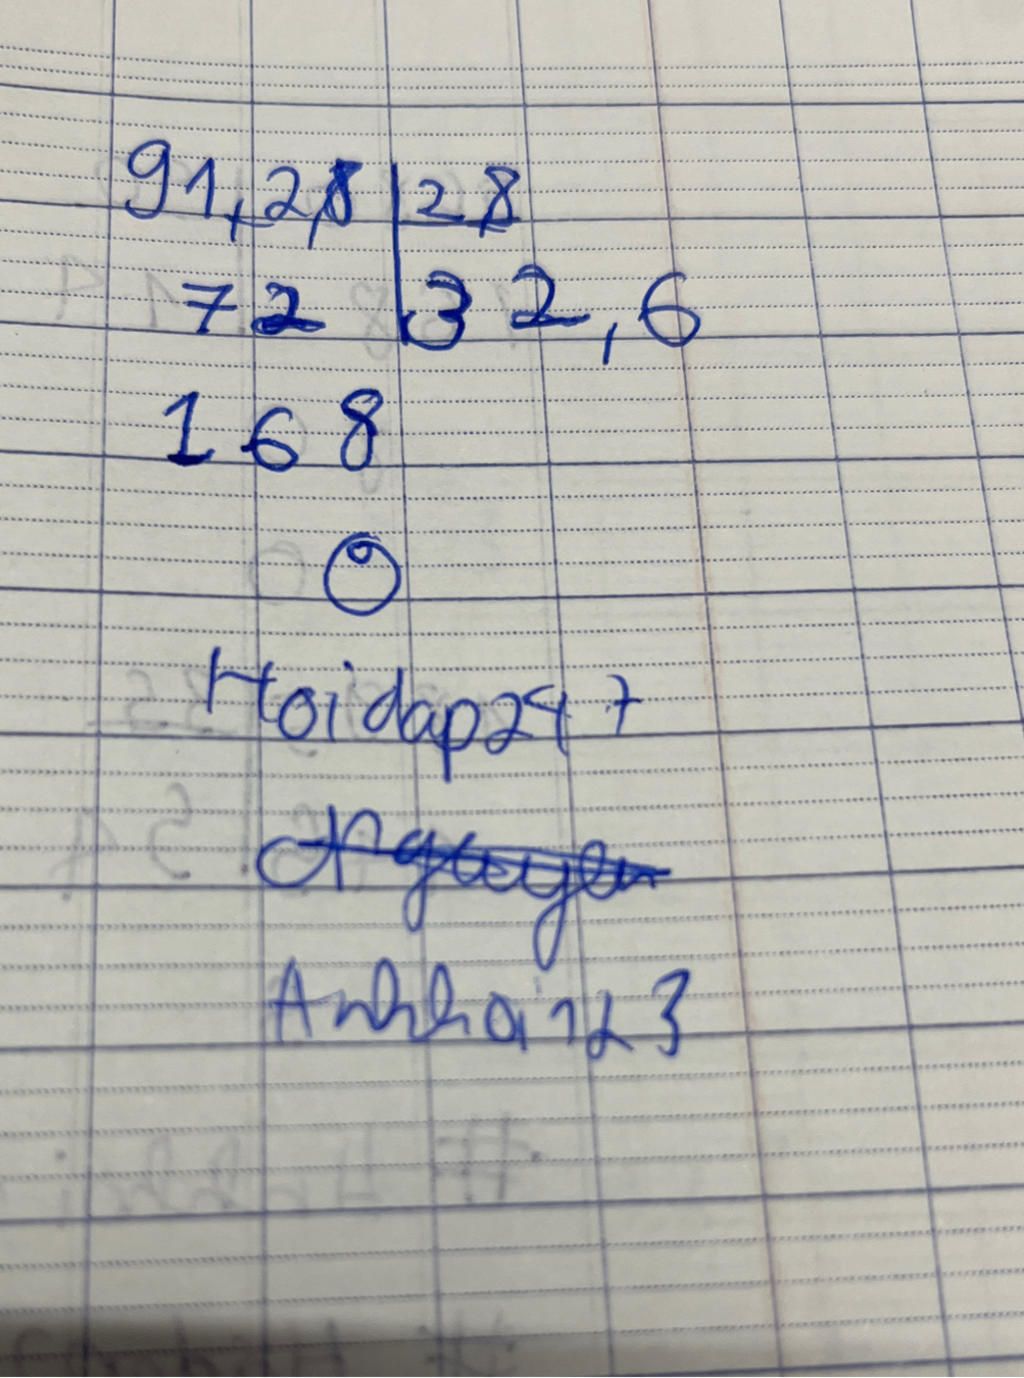 91,2,8 | 2,8
72 | 32,6
168
0
Hoidap247
Anhhai123